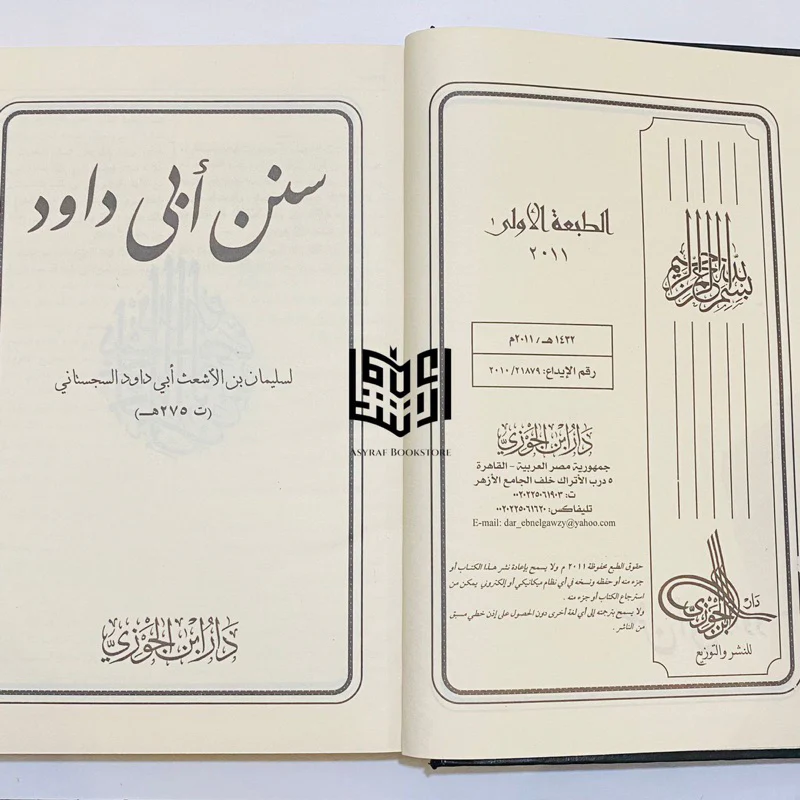 بسم الله الرحمن الرحيم
الطبعة الأولى
٢٠١١
١٤٣٢ هـ / ٢٠١١م
رقم الإيداع: ٢٠١٠/٢١٨٧٩
دار ابن الجوزي
جمهورية مصر العربية - القاهرة
٥ درب الأتراك خلف الجامع الأزهر
ت: ٠٠٢٠٢٢٥٠٦١٩٠٣
تليفاكس: ٠٠٢٠٢٢٥٠٦١٦٢٠
E-mail: dar_ebnelgawzy@yahoo.com
حقوق الطبع محفوظة ٢٠١١ م ولا يسمح بإعادة نشر هذا الكتاب أو
جزء منه أو حفظه ونسخه في أي نظام ميكانيكي أو إلكتروني يمكن من
استرجاع الكتاب أو جزء منه .
ولا يسمح بترجمته إلى أي لغة أخرى دون الحصول على إذن خطي مسبق
من الناشر .
دار
ابن الجوزي
للنشر والتوزيع
سنن أبي داود
لسليمان بن الأشعث أبي داود السجستاني
(ت ٢٧٥هـ)
دار ابن الجوزي
Asyraf Bookstore